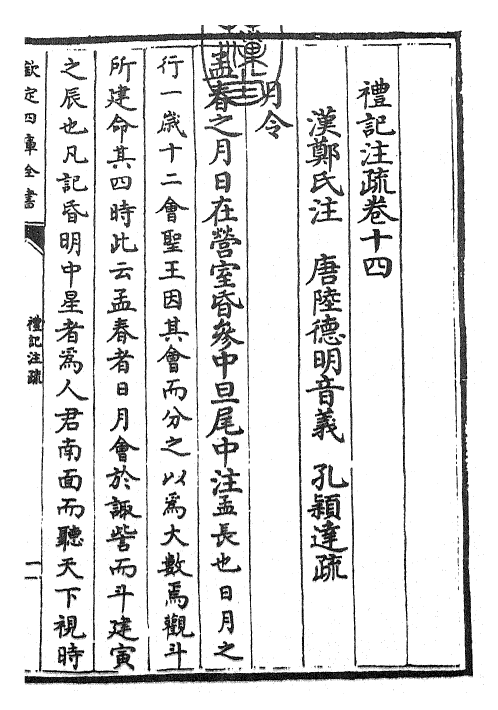 禮記注疏卷十四
漢鄭氏注　唐陸德明音義　孔穎達疏
月令
孟春之月日在營室昏參中旦尾中注孟長也日月之
行一歲十二會聖王因其會而分之以為大數焉觀斗
所建命其四時此云孟春者日月會於諏訾而斗建寅
之辰也凡記昏明中星者為人君南面而聽天下視時
欽定四庫全書
禮記注疏
一